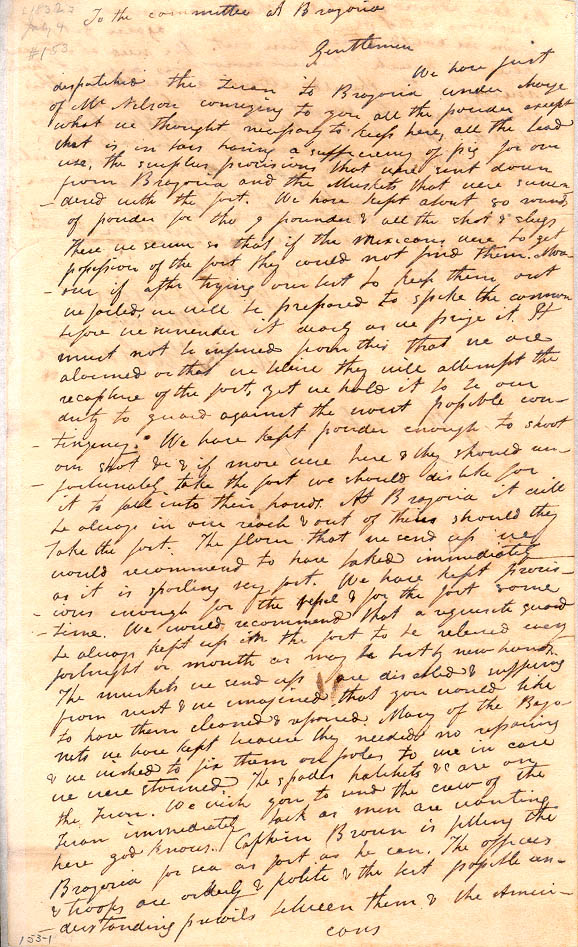 [1832?]
July 4
#153
To the committee at Brazoria
Gentlemen
We have just
dispatched the Zuan to Brazoria under charge
of Mr Nelson conveying to you all the powder except
what we thought necessary to keep here, all the lead
that is in bars having a sufficiency of pig for our
use, the surplus provisions that were sent down
from Brazoria and the Muskets that were surren-
dered with the fort. We have kept about 80 rounds
of powder for the 9 pounder & all the shot & slugs
These we secure so that if the Mexicans were to get
possession of the fort they could not find them. More-
over if after trying our best to keep them out
we failed, we will be prepared to spike the cannon
before we surrender it dearly as we prize it. It
must not be infered from this that we are
alarmed or that we believe they will attempt the
recapture of the fort, yet we hold it to be our
duty to guard against the worst possible con-
tingency. We have kept powder enough to shoot
our shot &c & if more were here & they should un-
fortunately take the fort we should dislike for
it to fall into their hands. At Brazoria it will
be always in our reach & out of theirs should they
take the fort. The flour that we send up we
would recommend to have baked immediately
as it is spoiling very fast. We have kept provis-
ions enough for the vessel & for the fort some
time. We would recommend that a requisite guard
be always kept up in the fort to be releved every
fortnight or month as may be best by new hands.
The muskets we send up are disabled & suffering
from rust & we imagined that you would like
to have them cleaned & repaired. Many of the Bayo-
nets we have kept because they needed no repairing
& we wished to fix them on poles to use in case
we were stormed. The spades hatchets &c are on
the Zuan. We wish you to send the crew of the
Zuan immediately back as men are wanting
here god knows. Captain Brown is filling the
Brazoria for sea as fast as he can. The officers
& troops are orderly & polite & the best possible un-
derstanding prevails between them & the Ameri-
cans
153-1